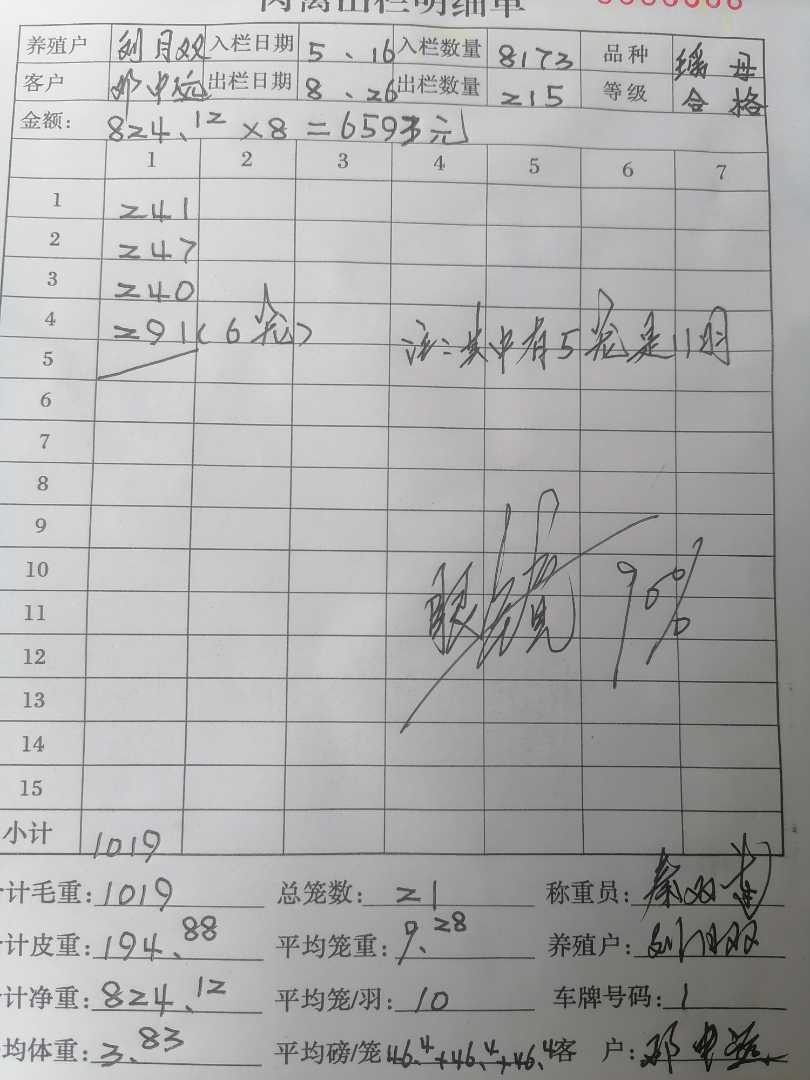 肉禽出栏明细单
养殖户 刘月双 入栏日期 5、16 入栏数量 8173 品种 瑶母
客户 邓中运 出栏日期 8、26 出栏数量 215 等级 合格
金额: 824.12×8=6593元
1 2 3 4 5 6 7
1 241
2 247
3 240
4 291(6笼) 注:其中有5笼是11羽
5
6
7
8
9
10
11 90%
12
13
14
15
小计 1019
计毛重: 1019 总笼数: 21 称重员:
计皮重: 194.88 平均笼重: 9.28 养殖户: 刘月双
计净重: 824.12 平均笼/羽: 10 车牌号码: 1
均体重: 3.83 平均磅/笼 46.4+46.4+46.4 客户: 邓中运